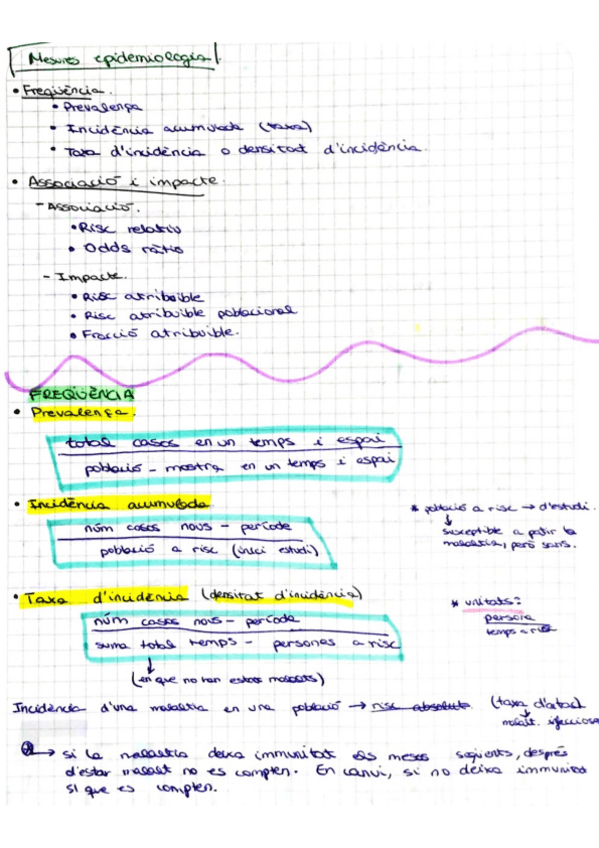 Mesures epidemiologia
• Freqüència.
• Prevalença
• Incidència acumulada (taxa)
• Taxa d'incidència o densitat d'incidència.
• Associació i impacte.
- Associació.
• Risc relatiu
• Odds ratio
- Impacte.
• Risc atribuible
• Risc atribuible poblacional
• Fracció atribuible.
FREQÜÈNCIA
• Prevalença.
total casos en un temps i espai
població - mostra en un temps i espai
• Incidència acumulada
núm casos nous - període
població a risc (inici estudi)
* població a risc → d'estudi.
susceptible a patir la
malaltia, però sans.
• Taxa d'incidència (densitat d'incidència)
núm casos nous - període
suma total temps - persones a risc
(en que no han estat malalts)
* unitats:
persona
temps a risc
Incidència d'una malaltia en una població → risc absolut. (taxa d'atac)
malalt. infecciosa
→ si la malaltia deixa immunitat els mesos següents, després
d'estar malalt no es compten. En canvi, si no deixa immunitat
SI que es compten.